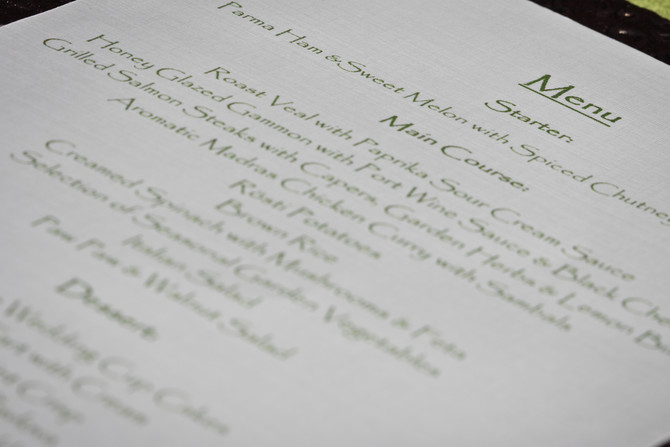 Menu
Starter:
Parma Ham & Sweet Melon with Spiced Chutney
Main Course:
Roast Veal with Paprika Sour Cream Sauce
Honey Glazed Gammon with Port Wine Sauce & Black
Grilled Salmon Steaks with Capers, Garden Herbs & Lemon
Aromatic Madras Chicken Curry with Sambals
Rosti Potatoes
Brown Rice
Creamed Spinach with Mushrooms & Feta
Selection of Seasonal Garden Vegetables
Italian Salad
Paw Paw & Walnut Salad
Dessert:
Wedding Cup Cakes
with Cream